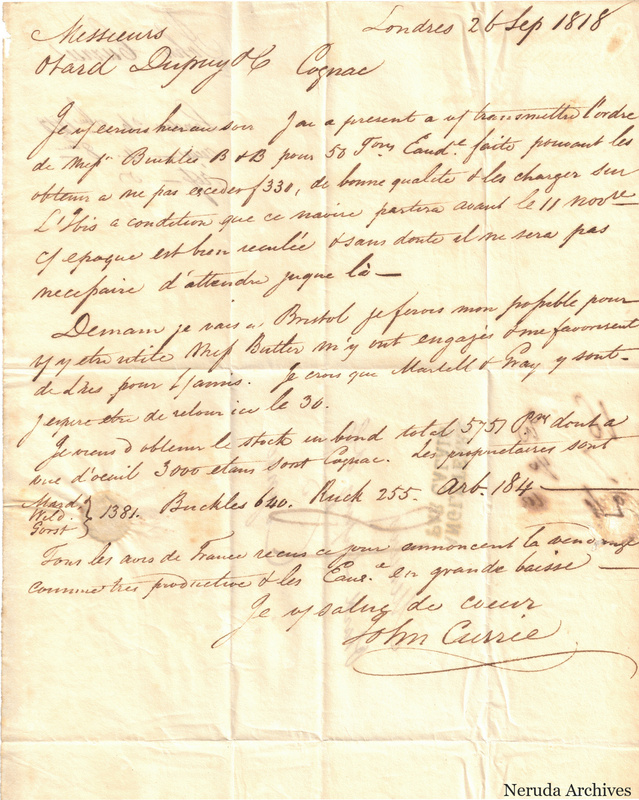 Londres 26 Sep 1818
Messieurs
Otard Dupuy & C Cognac
Je v/ ecrivis hier au soir J'ai a present a v/ transmettre l'ordre
de Mess Buckles B & B pour 50 Tons Eaud.e faite pouvant les
obtenir a ne pas exceder f 330, de bonne qualité & les charger sur
L'Ibis a condition que ce navire partira avant le 11 Nov.re
c/ epoque est bien reculée & sans doute il ne sera pas
necessaire d'attendre juque là —
Demain je vais a Bristol je ferois mon possible pour
v/ y etre utile Mess Butler m'y ont engagés & me favorisent
de L'res pour l/ amis. Je crois que Martell & Gray y sont -
J'espere etre de retour ici le 30.
Je viens d'obtenir le stock in bond total 5751 dont a
vue d'oeuil 3000 et ans sont Cognac. Les proprietaires sont
Mard.
Gorst } 1381. Buckles 640. Ruck 255. Arb. 184 —
Tous les avis de France recus ce jour annoncent la vendange
comme tres productive & les Eaux.e en grande baisse —
Je v/ salue de coeur
John Currie
Neruda Archives